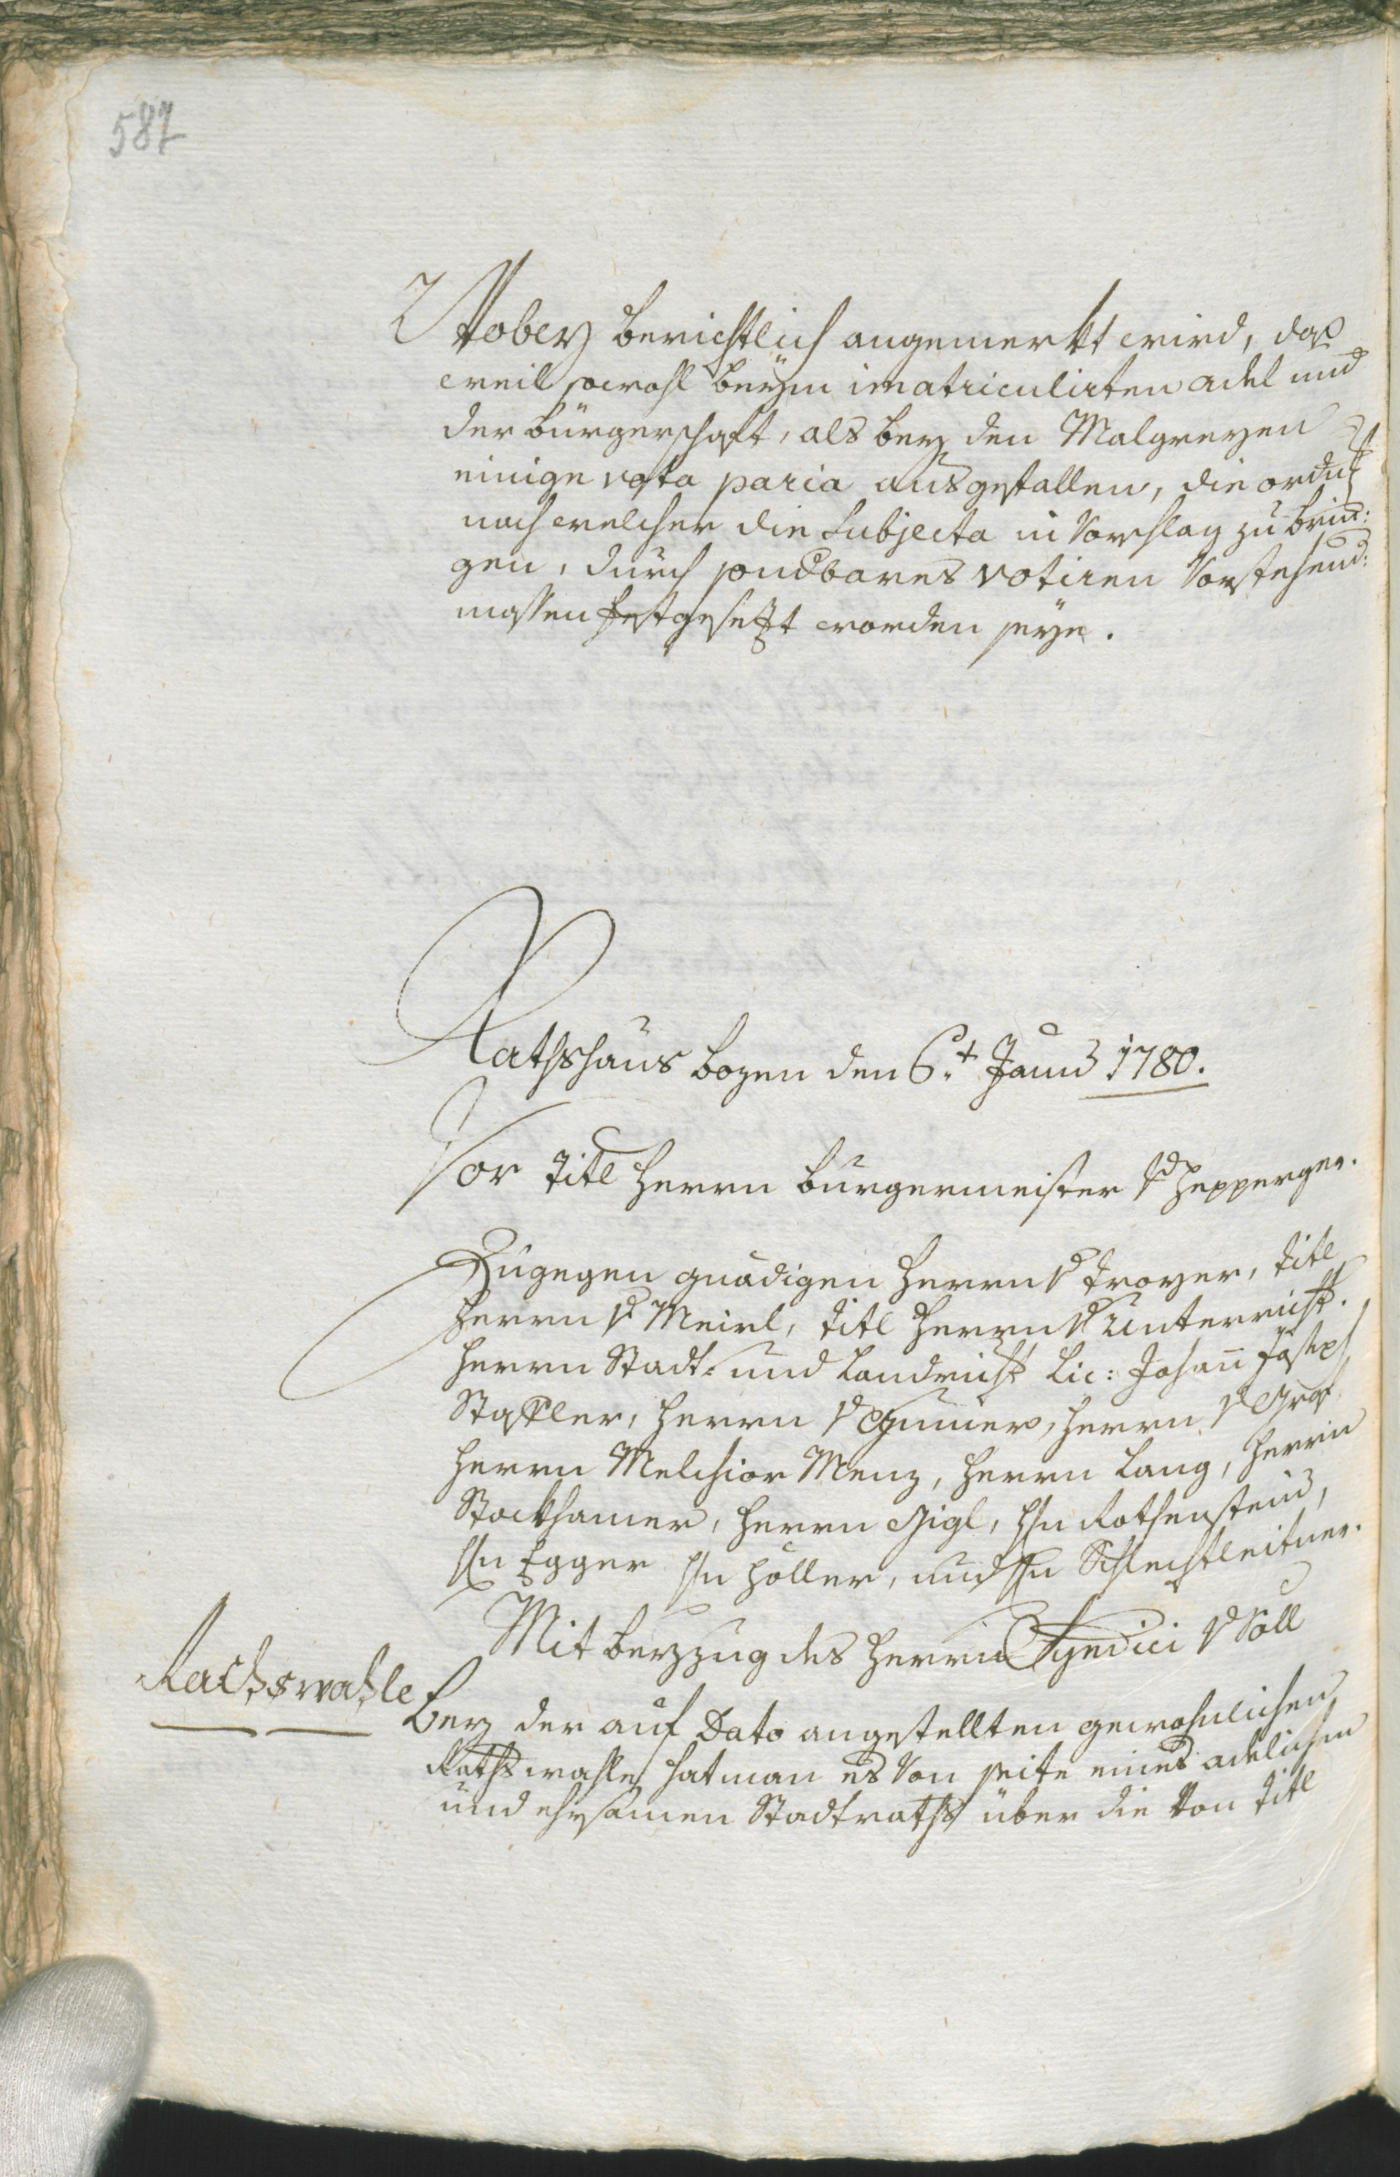 587
Wobey berichtlich angemerkt wird, daß
weil sowohl beÿm imatriculirten adel und
der bürgerschaft, als bey den Malgreyen
einige vota paria ausgefallen, die ordnug
nach welcher die Subjecta in Vorschlag zu brin:
gen, durch sondbares votiren Vorstehend:
massen festgesetzt worden seÿe.
Rathshaus bozen den 6.t Jenner 1780.
Vor Titl Herrn burgermeister v Hepperger.
Zugegen gnädigen Herrn v Troyer, Titl
Herrn v Meirl, Titl Herrn v Unterricht.
Herrn Stadt- und Landricht Lic: Johan Joseph
Stafler, Herrn v Gumer, Herrn v Graf
Herrn Melchior Menz, Herrn Lang, Herrn
Stockhamer, Herrn Gigl, H:n Rothensteiner,
H:n Egger H:n Holler, und H:n Schlechtleitner.
Mit beyzug des Herrn Syndici v Söll
Rathswahle
Bey der auf Dato angestellten gewohnlichen
Rathswahle hat man es Von seite eines adelichen
und ehrsamen Stadtraths über die Von Titl